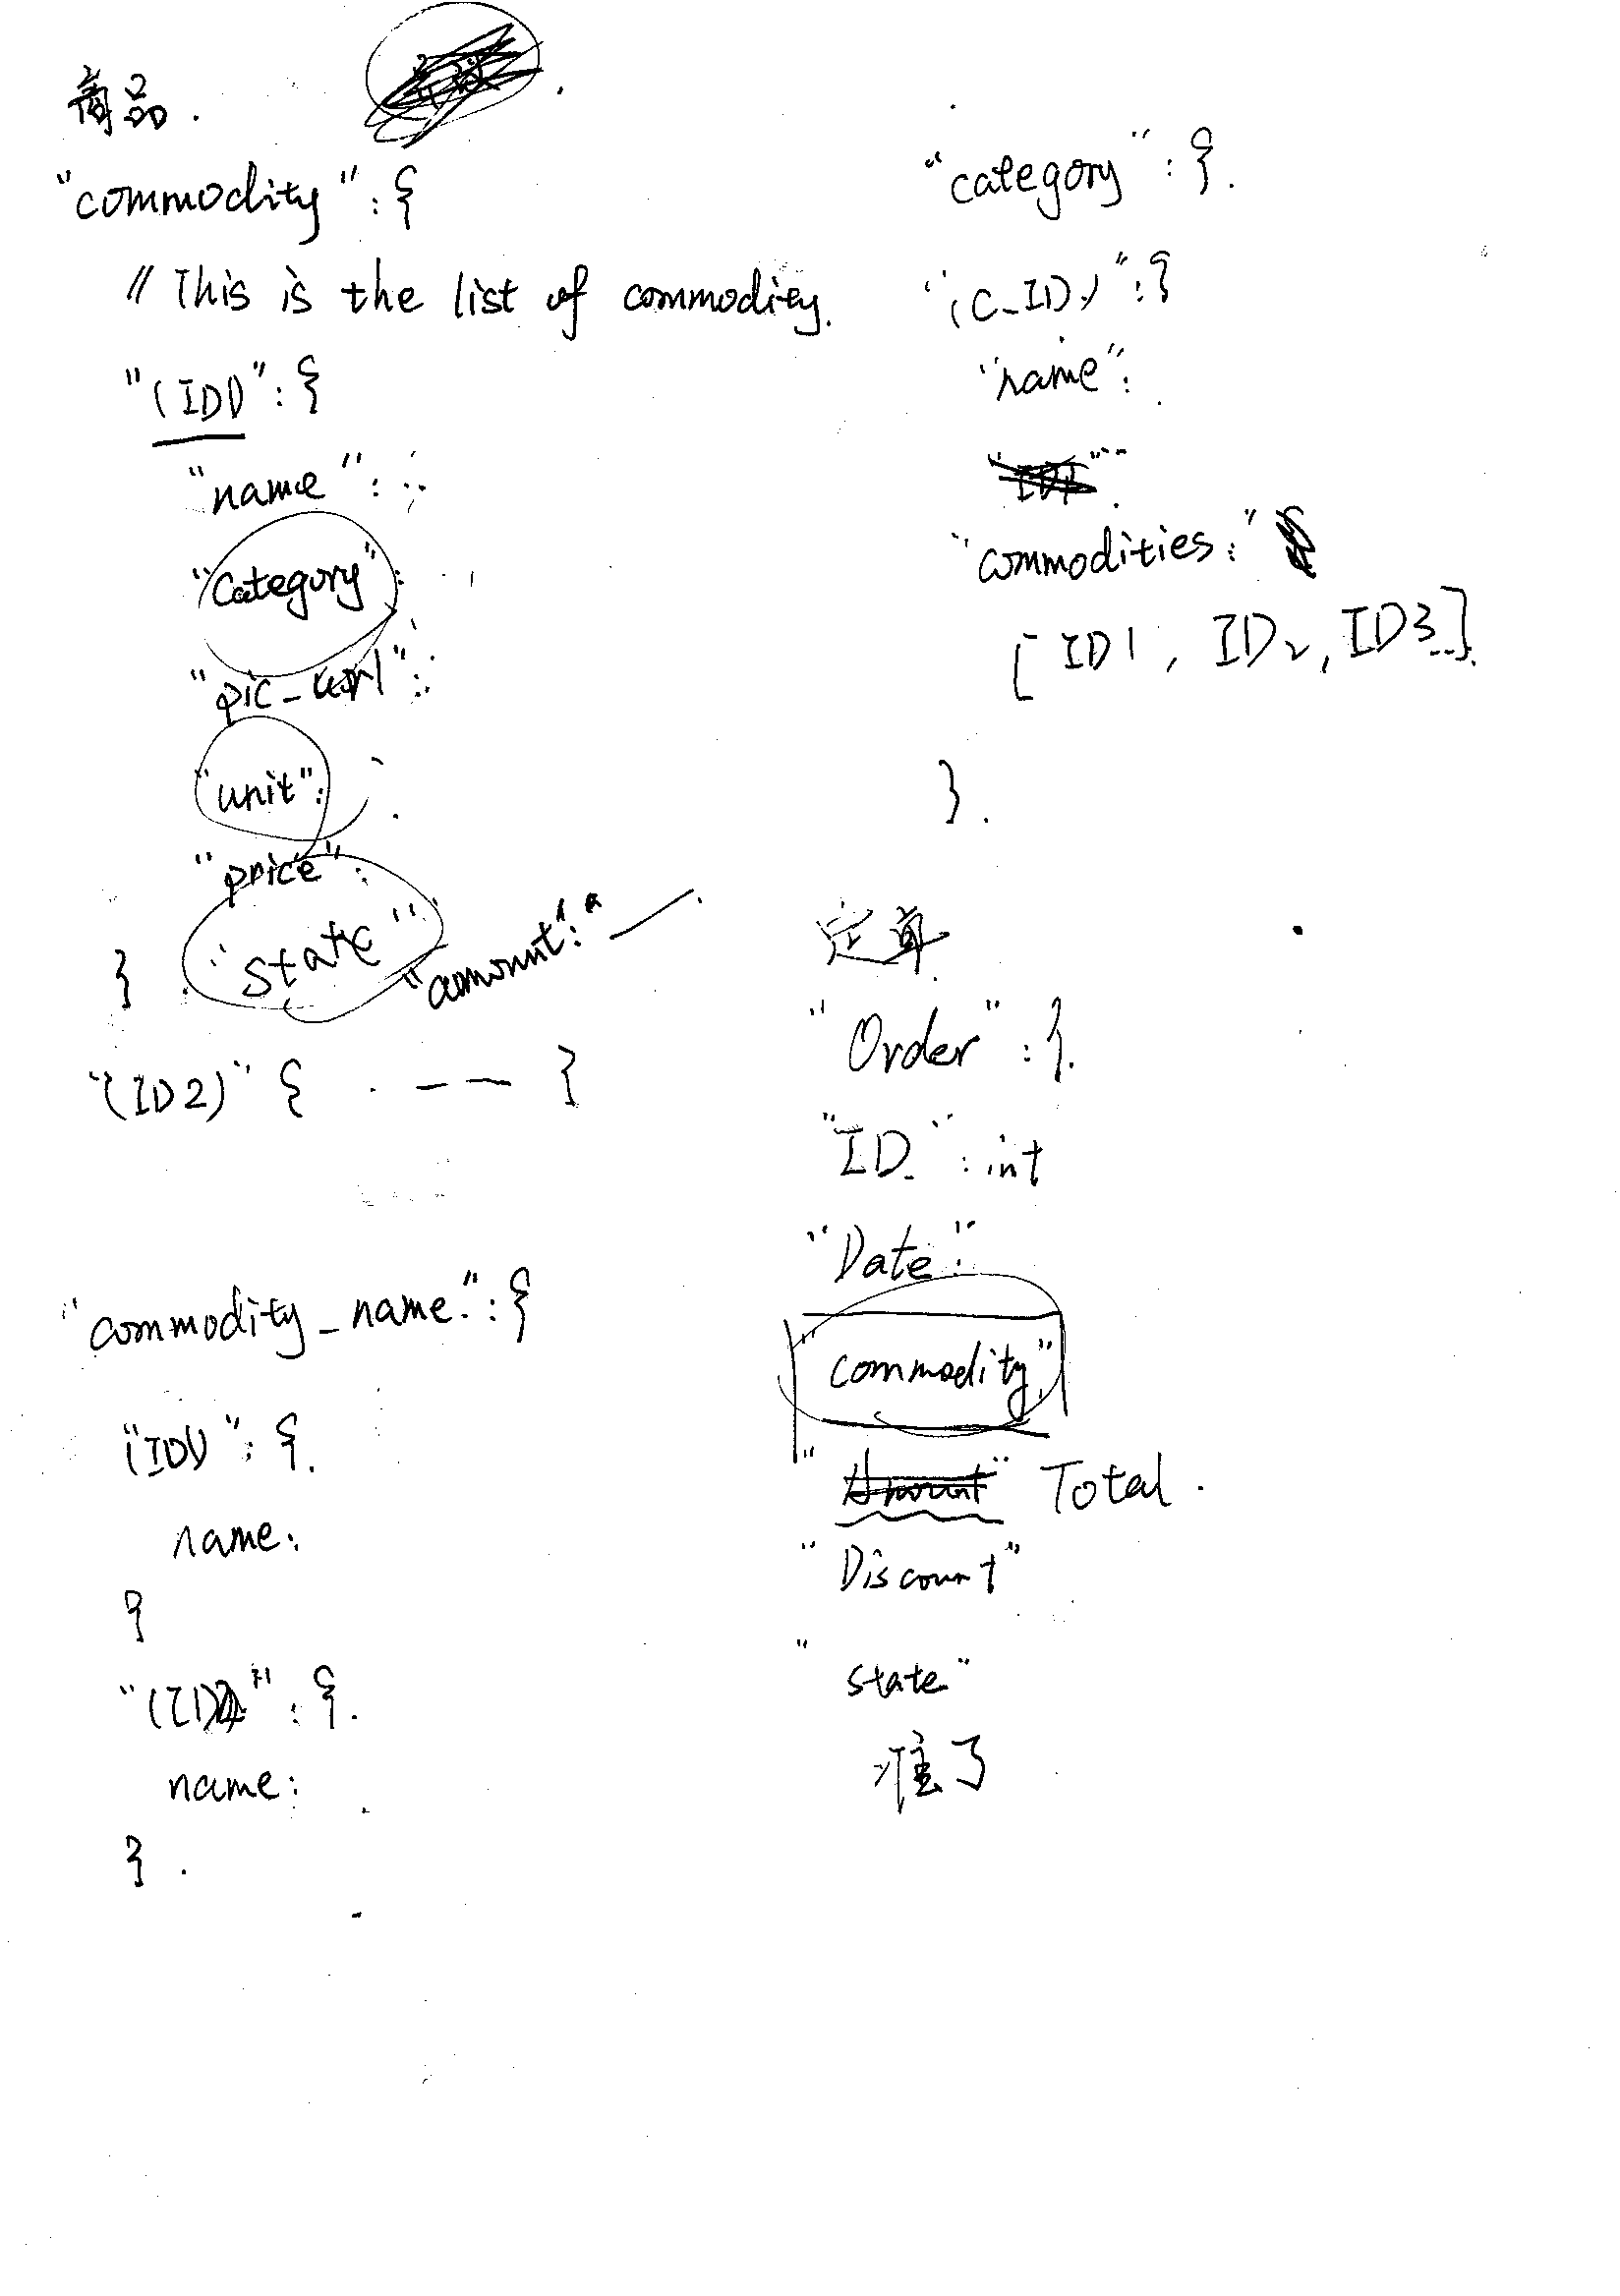 商品.
"commodity":{
// This is the list of commodity.
"(ID1)":{
"name":
"Category":
"pic_url":
"unit":
"price":
"state"
"amount":"
}
"(ID2)" { . — — }
"commodity_name":{
"(ID1)":{
name:
}
"(ID2)":{
name:
}
"category":{
"(C_ID)":{
"name":
"commodities:"
[ID1, ID2, ID3..]
}
定单
"Order":{
"ID":int
"Date":
"commodity"
"Amount" Total
"Discount"
"state"